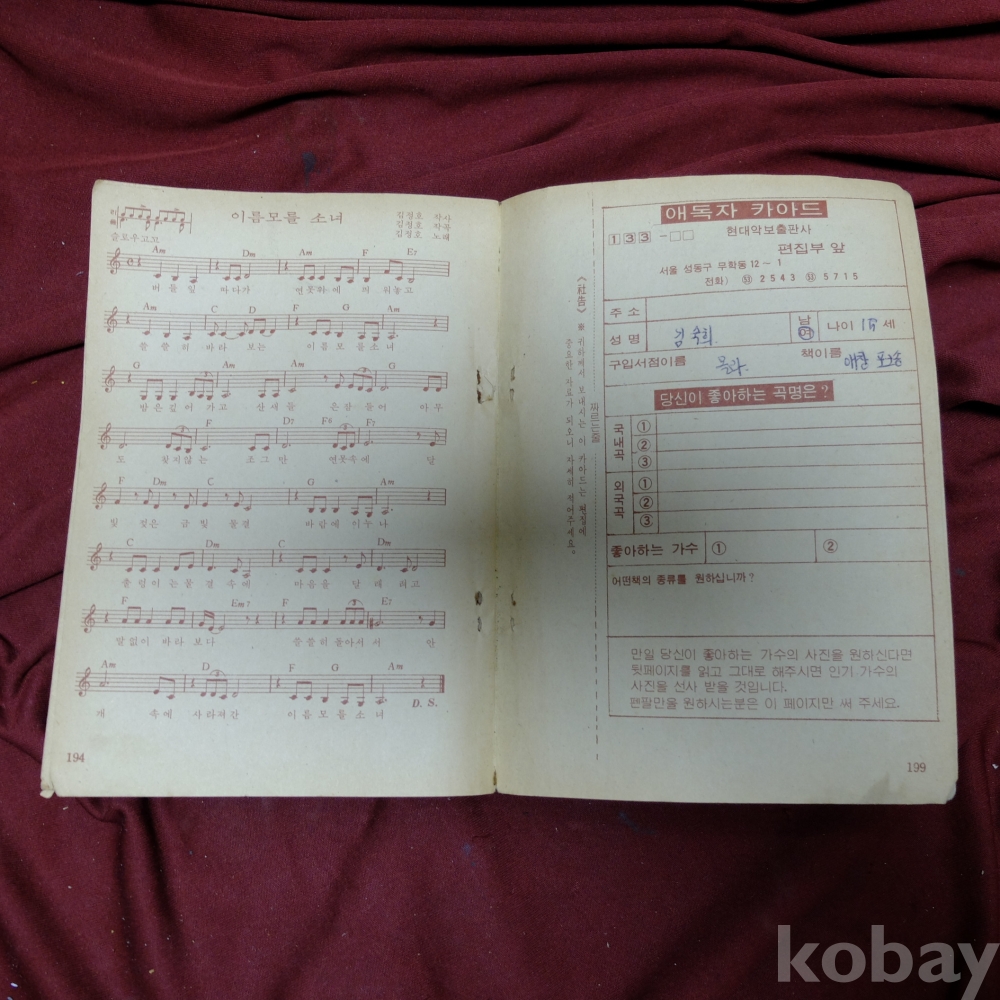 이름모를 소녀
김정호 작사
김정호 작곡
김정호 노래
슬로우고고
Am Dm Am F E7
버들잎 따다가 연못위에 띄워놓고
Am C Dm F G Am
쓸쓸히 바라보는 이름모를소녀
G Am G Am
밤은깊어가고 산새들은잠들어 아무
F D7 F#
도 찾지않는 조그만 연못속에 달
F Dm C G Am
빛 젖은 금빛 물결 바람에 이누나
C Dm C Dm
출렁이는물결속에 마음을 달래려고
F Em7 F E7
말없이 바라보다 쓸쓸히돌아서서 안
Am D F G Am
개 속에 사라져간 이름모를소녀
D. S.
194
〈社告〉 ※ 귀하께서 보내시는 이 카아드는 편집에
중요한 자료가 되오니 자세히 적어주세요。
짜르는줄
애독자 카아드
133-□□
현대악보출판사
편집부 앞
서울 성동구 무학동 12-1
전화) 2543 5715
주소
성명 김숙희 남 여 나이 세
구입서점이름 몰라. 책이름
당신이 좋아하는 곡명은?
국내곡 ① ② ③
외국곡 ① ② ③
좋아하는 가수 ① ②
어떤책의 종류를 원하십니까?
만일 당신이 좋아하는 가수의 사진을 원하신다면
뒷페이지를 읽고 그대로 해주시면 인기 가수의
사진을 선사 받을 것입니다.
팬팔만을 원하시는분은 이 페이지만 써 주세요.
199
kobay